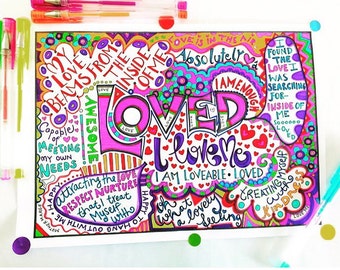 MY
LOVE
BEAMS FROM
THE
INSIDE
OF ME
LOVE IS IN THE AIR
absolutely
I FOUND
THE
LOVE I
WAS
SEARCHING
FOR
INSIDE OF
ME
I AM ENOUGH
AWESOME
LOVED
I love me
I AM LOVEABLE + LOVED
Capable
of
MEETING
MY OWN
NEEDS
attracting the LOVE
RESPECT NURTURE
that I treat
MYSELF
with
HAPPY TO HANG OUT WITH ME
oh
what
a lovely
feeling
CREATING MYSELF
with